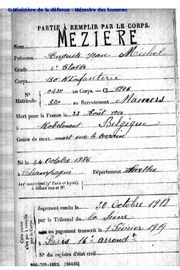 © Ministère de la défense - Mémoire des hommes
PARTIE À REMPLIR PAR LE CORPS.
MEZIERE
Nom
Prénoms Auguste Jean Michel
Grade 2e Classe
Corps 130 R. d'Infanterie
N° au Corps. — Cl. 1906
Matricule. 220 au Recrutement Mamers
Mort pour la France le 22 Août 1914
à Belgique
Genre de mort
Né le 24 Octobre 1886
à Champagné Département Sarthe
Arr municipal (p' Paris et Lyon),
à défaut rue et N°.
Jugement rendu le 30 Octobre 1918
par le Tribunal de la Seine
jugement transcrit le 1 février 1919
Paris 16e arrondt
N° du registre d'état civil